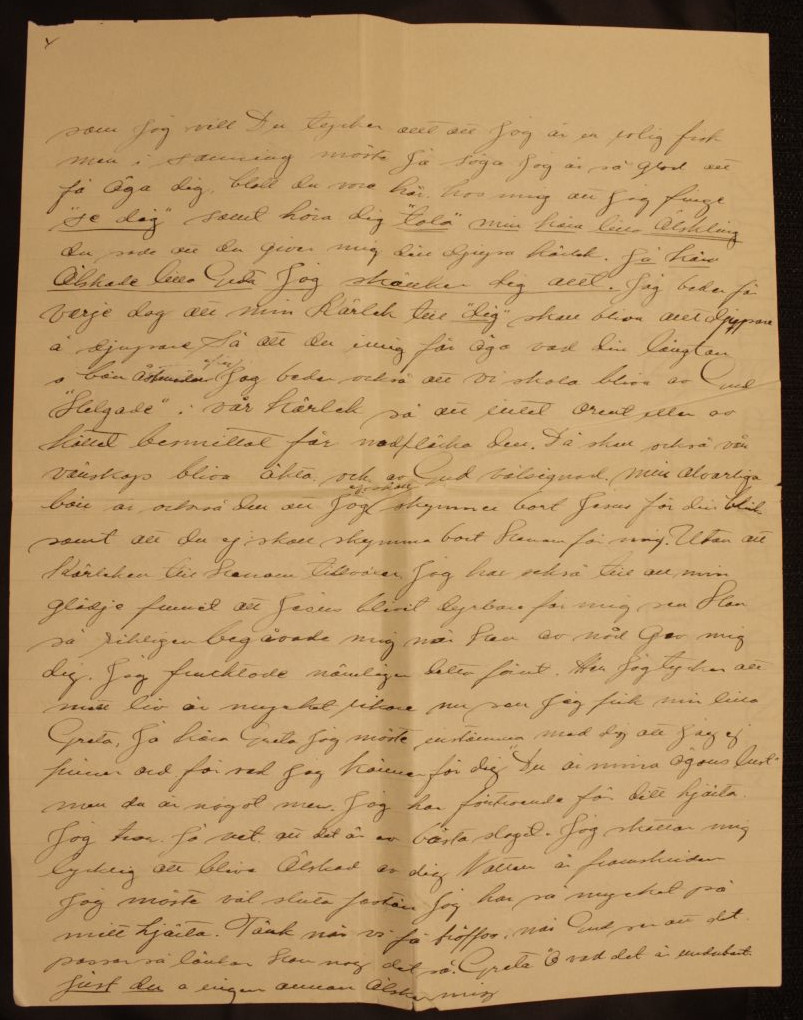 som jag vill Du tycker allt att jag är en rolig
men i sanning måste jag säga jag är så glad att
få äga dig, blott du vore här hos mig att jag finge
"se dig" samt höra dig "tala" min kära lilla Älskling
du sade att du giver mig din djupa kärlek. Ja kära
Älskade lilla Greta jag skänker dig allt. Jag beder för
verje dag att min Kärlek till "dig" skall bliva allt djupare
å djupare Så att du innerlig får äga vad din längtan
o bön Jag beder också att vi skola bliva av Gud
"Helgade" i vår Kärlek så att intet orent eller av
köttet besmittat får nedfläcka den. Då skall också vår
vänskap bliva äkta och av Gud välsignad. Min alvarliga
bön är också den att jag ej skall skymmer bort Jesus för din blick
samt att du ej skall skymma bort Honom för mig. Utan att
Kärleken till Honom tillväxer Jag har också till all min
glädje funnit att Jesus blivit dyrbare för mig sen Han
så rikligen begåvade mig när Han av nåd Gav mig
dig. Jag fruktade nämligen detta först. Men jag tycker att
mitt liv är mycket rikare nu sen jag fick min lilla
Greta, Ja kära Greta jag måste instämma med dig att jag ej
finner ord för vad jag känner för dig "Du är mina ögons lust"
men du är något mer. Jag har förtroende för ditt hjärta.
Jag tror. Ja vet att det är av bästa slaget. Jag skattar mig
lycklig att bliva Älskad av dig Natten är framskriden
Jag måste väl sluta fastän jag har så mycket på
mitt hjärta. Tänk när vi få träffas, när Gud ser att det
passar så länkar Han nog det så. Greta Ö vad det är underbart
just du o ingen annan Älskar mig